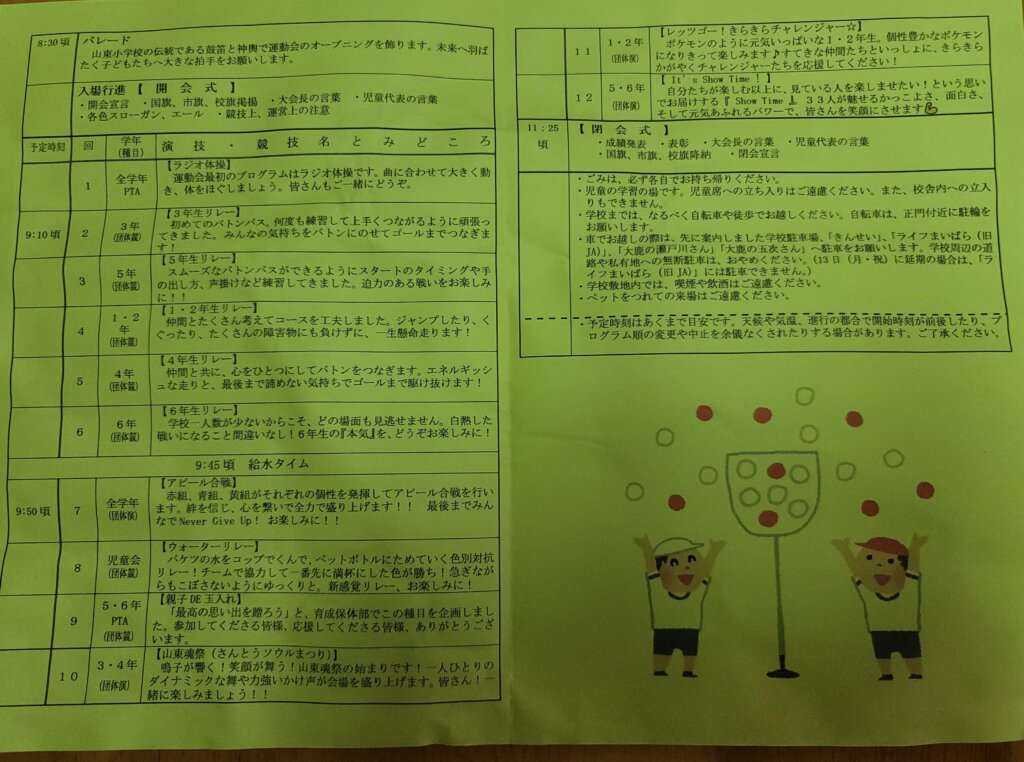 8:30頃 パレード
山東小学校の伝統である鼓笛と神輿で運動会のオープニングを飾ります。未来へ羽ば
たく子どもたちへ大きな拍手をお願いします。
入場行進【 開 会 式 】
・開会宣言 ・国旗、市旗、校旗掲揚 ・大会長の言葉 ・児童代表の言葉
・各色スローガン、エール ・競技上、運営上の注意
予定時刻 回 学年(種目) 演 技 ・ 競 技 名 と み ど こ ろ
1 全学年 PTA 【ラジオ体操】
運動会最初のプログラムはラジオ体操です。曲に合わせて大きく動
き、体をほぐしましょう。皆さんもご一緒にどうぞ。
9:10頃 2 3年(団体競) 【3年生リレー】
初めてのバトンパス。何度も練習して上手くつながるように頑張っ
てきました。みんなの気持ちをバトンにのせてゴールまでつなぎま
す!
3 5年(団体競) 【5年生リレー】
スムーズなバトンパスができるようにスタートのタイミングや手
の出し方、声掛けなど練習してきました。迫力のある戦いをお楽しみ
に!!
4 1・2年(団体競) 【1・2年生リレー】
仲間とたくさん考えてコースを工夫しました。ジャンプしたり、く
ぐったり、たくさんの障害物にも負けずに、一生懸命走ります!
5 4年(団体競) 【4年生リレー】
仲間と共に、心をひとつにしてバトンをつなぎます。エネルギッシ
ュな走りと、最後まで諦めない気持ちでゴールまで駆け抜けます!
6 6年(団体競) 【6年生リレー】
学校一人数が少ないからこそ、どの場面も見逃せません。白熱した
戦いになること間違いなし!6年生の『本気』を、どうぞお楽しみに!
9:45頃 給水タイム
9:50頃 7 全学年(団体演) 【アピール合戦】
赤組、青組、黄組がそれぞれの個性を発揮してアピール合戦を行い
ます。絆を信じ、心を繋いで全力で盛り上げます!! 最後までみん
なでNever Give Up! お楽しみに!!
8 児童会(団体競) 【ウォーターリレー】
バケツの水をコップでくんで、ペットボトルにためていく色別対抗
リレー!チームで協力して一番先に満杯にした色が勝ち!急ぎなが
らもこぼさないようにゆっくりと。新感覚リレー、お楽しみに!
9 5・6年 PTA(団体競) 【親子DE玉入れ】
「最高の思い出を贈ろう」と、育成保体部でこの種目を企画しまし
た。参加してくださる皆様、応援してくださる皆様、ありがとうござ
います。
10 3・4年(団体演) 【山東魂祭(さんとうソウルまつり)】
鳴子が響く!笑顔が舞う!山東魂祭の始まりです!一人ひとりの
ダイナミックな舞や力強いかけ声が会場を盛り上げます。皆さん!一
緒に楽しみましょう!!
11 1・2年(団体演) 【レッツゴー!きらきらチャレンジャー☆】
ポケモンのように元気いっぱいな1・2年生。個性豊かなポケモン
になりきって楽しみます♪すてきな仲間たちといっしょに、きらきら
かがやくチャレンジャーたちを応援してください!
12 5・6年(団体演) 【It's Show Time!】
自分たちが楽しむ以上に、見ている人を楽しませたい!という思い
でお届けする『Show Time』。33人が魅せるかっこよさ、面白さ、
そして元気あふれるパワーで、皆さんを笑顔にさせます
11:25頃 【 閉 会 式 】
・成績発表 ・表彰 ・大会長の言葉 ・児童代表の言葉
・国旗、市旗、校旗降納 ・閉会宣言
・ごみは、必ず各自でお持ち帰りください。
・児童の学習の場です。児童席への立ち入りはご遠慮ください。また、校舎内への立入
りもできません。
・学校までは、なるべく自転車や徒歩でお越しください。自転車は、正門付近に駐輪を
お願いします。
・車でお越しの際は、先に案内しました学校駐車場、「きんせい」、「ライフまいばら(旧
JA)」、「大鹿の瀬戸川さん」「大鹿の玉次さん」へ駐車をお願いします。学校周辺の道
路や私有地への無断駐車は、おやめください。(13日(月・祝)に延期の場合は、「ラ
イフまいばら(旧JA)」には駐車できません。)
・学校敷地内では、喫煙や飲酒はご遠慮ください。
・ペットをつれての来場はご遠慮ください。
・予定時刻はあくまで目安です。天候や気温、進行の都合で開始時刻が前後したり、プ
ログラム順の変更や中止を余儀なくされたりする場合があります。ご了承ください。